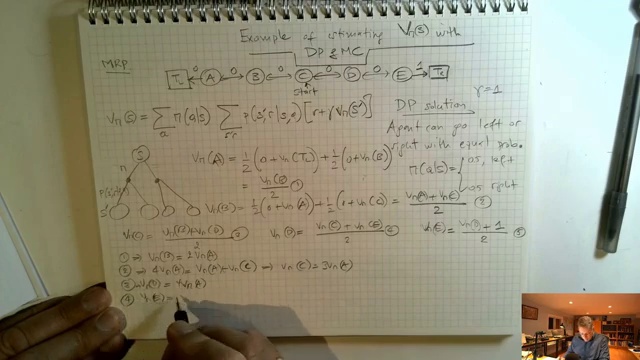 Example of estimating Vπ(s) with
DP & MC
MRP
T ← 0 A ↔ 0 B ↔ 0 C ↔ 0 D ↔ 0 E → 1 T
start
Vπ(s) = Σ_a π(a|s) Σ_s',r p(s',r|s,a) [r + γVπ(s')]
DP solution γ=1
Agent can go left or
right with equal prob.
π(a|s) = { 0.5, left
0.5 right
s
π
s'
Vπ(A) = 1/2 (0 + Vπ(TL)) + 1/2 (0 + Vπ(B))
= Vπ(B)/2 ①
Vπ(B) = 1/2 (0 + Vπ(A)) + 1/2 (0 + Vπ(C)) = (Vπ(A) + Vπ(C))/2 ②
Vπ(C) = (Vπ(B) + Vπ(D))/2 ③ Vπ(D) = (Vπ(C) + Vπ(E))/2 ④ Vπ(E) = (Vπ(D) + 1)/2 ⑤
① ⇒ Vπ(B) = 2Vπ(A)
② ⇒ 4Vπ(A) = Vπ(A) + Vπ(C) ⇒ Vπ(C) = 3Vπ(A)
③ ⇒ Vπ(D) = 4Vπ(A)
④ Vπ(E) =